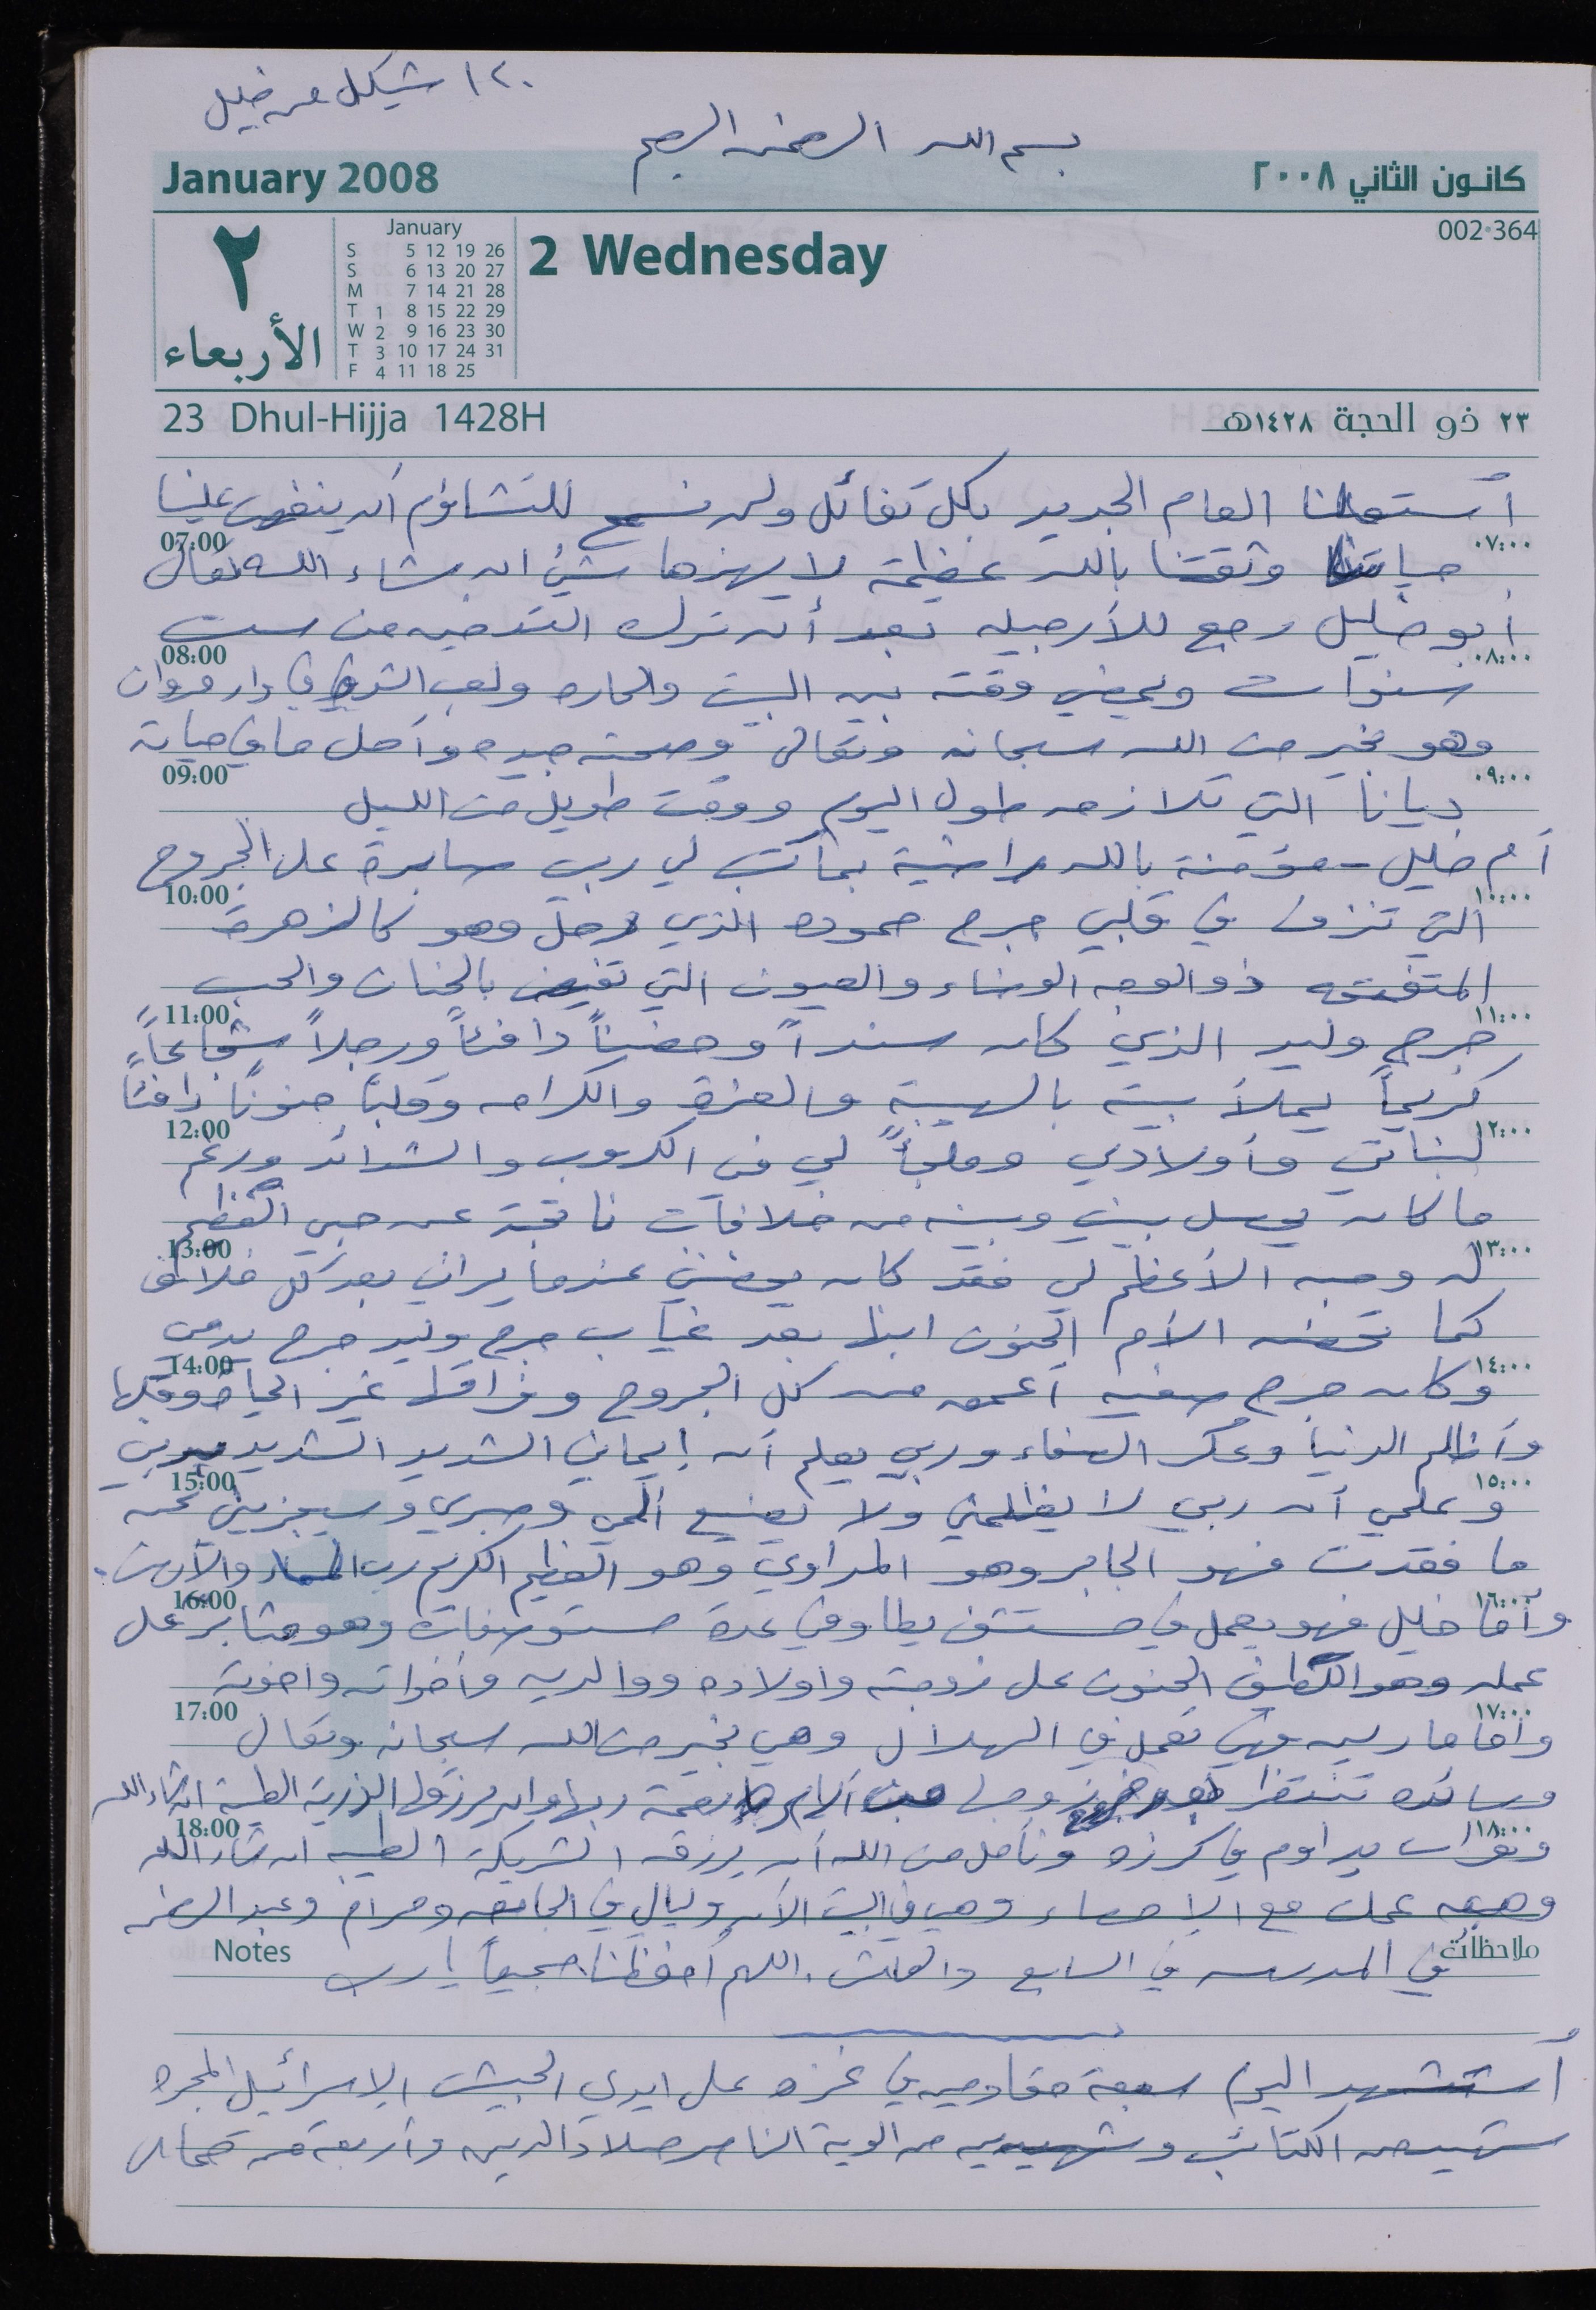 ١٢٠ شيكل من خليل
بسم الله الرحمن الرحيم
January 2008
كانون الثاني ٢٠٠٨
٢
الأربعاء
January
S 5 12 19 26
S 6 13 20 27
M 7 14 21 28
T 1 8 15 22 29
W 2 9 16 23 30
T 3 10 17 24 31
F 4 11 18 25
2 Wednesday
002-364
23 Dhul-Hijja 1428H
٢٣ ذو الحجة ١٤٢٨هـ
أستقبلنا العام الجديد بكل تفائل ولن نسمح للتشاؤم أن ينغص علينا
07:00 ٠٧:٠٠
حياتنا وثقتنا بالله عظيمة لا يهزها شيئ ان شاء الله تعالى
أبو خليل رجع للأرجيله بعد أن ترك التدخين من ست
08:00 ٠٨:٠٠
سنوات ويمضي وقته بين البيت والحاره ولعب في دار مروان
وهو بخير من الله سبحانه وتعالى وصحته جيده وأجمل ما في حياته
09:00 ٠٩:٠٠
ديانا التي تلازمه طول اليوم ووقت طويل من الليل
أم خليل - مؤمنة بالله راضية بما كتب لي ربي صابرة على الجروح
10:00 ١٠:٠٠
التي تنزف في قلبي جرح حموده الذي رحل وهو كالزهرة
المتفتحه ذو الوجه الوضاء والعيون التي تفيض بالحنان والحب
11:00 ١١:٠٠
جرح وليد الذي كان سنداً وحضناً دافئاً ورجلاً شجاعاً
كريماً يملأ بيته بالهيبة والعزة والكرامه وقلباً حنوناً دافئاً
12:00 ١٢:٠٠
لبناتي وأولادي وملجأً لي في الكروب والشدائد ورغم
ما كان يحصل بيني وبينه من خلافات ناتجة عن حبي العظيم
13:00 ١٣:٠٠
له وحبه الأعظم لي فقد كان يحضنني عندما يراني بعد كل خلاف
كما تحضن الأم الحنون ابنها بعد غياب جرح وليد جرح يدمي
14:00 ١٤:٠٠
وكان جرح صفيه أعمق من كل الجروح وفراقها غير الحياة وقلبها
وأظلم الدنيا وعكر الصفاء وربي يعلم أن إيماني الشديد الشديد بربي
15:00 ١٥:٠٠
وعلمي أن ربي لا يظلمني ولا يضيع ألمي وصبري وسيجزيني عن
ما فقدت فهو الجابر وهو المداوي وهو العظيم الكريم رب السماء والأرض.
16:00 ١٦:٠٠
وأما خليل فهو يعمل في مستشفى يطا وفي عدة مستوصفات وهو مثابر على
عمله وهو اللطيف الحنون على زوجته وأولاده ووالديه وأخواته وأخوته
17:00 ١٧:٠٠
وأما مارييه فهي تعمل في الهلال وهي بخير من الله سبحانه وتعالى
وسائده تنتظر زوجها نعمة ربها وان يرزقها الذرية الطيبة ان شاء الله
18:00 ١٨:٠٠
يداوم في كرزه ونأمل من الله أن يرزقه الشريكة الطيبه ان شاء الله
عملت مع الإحصاء وهي في البيت الآن وليالي في الجامعه ومرام وعبد الرحمن
Notes ملاحظات
في المدرسه في السابع والعاشر. اللهم أحفظنا جميعاً يا رب
أستشهد اليوم سبعة مقاومين في غزه على ايدي الجيش الإسرائيلي المجرم
شهيد من الكتائب وشهيدين من الوية الناصر صلاح الدين وأربعة من حماس